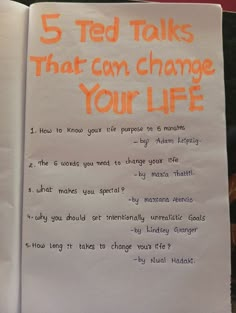 5 Ted Talks
That can change
Your LIFE
1. How to know your life purpose in 5 minutes
- by Adam Leipzig.
2. The 6 words you need to change your life
- by Maria Thattil
3. what makes you special?
- by Mariana Atencio
4. why you should set intentionally unrealistic Goals
- by Lindsey Granger
5. How long it takes to change your life?
- by